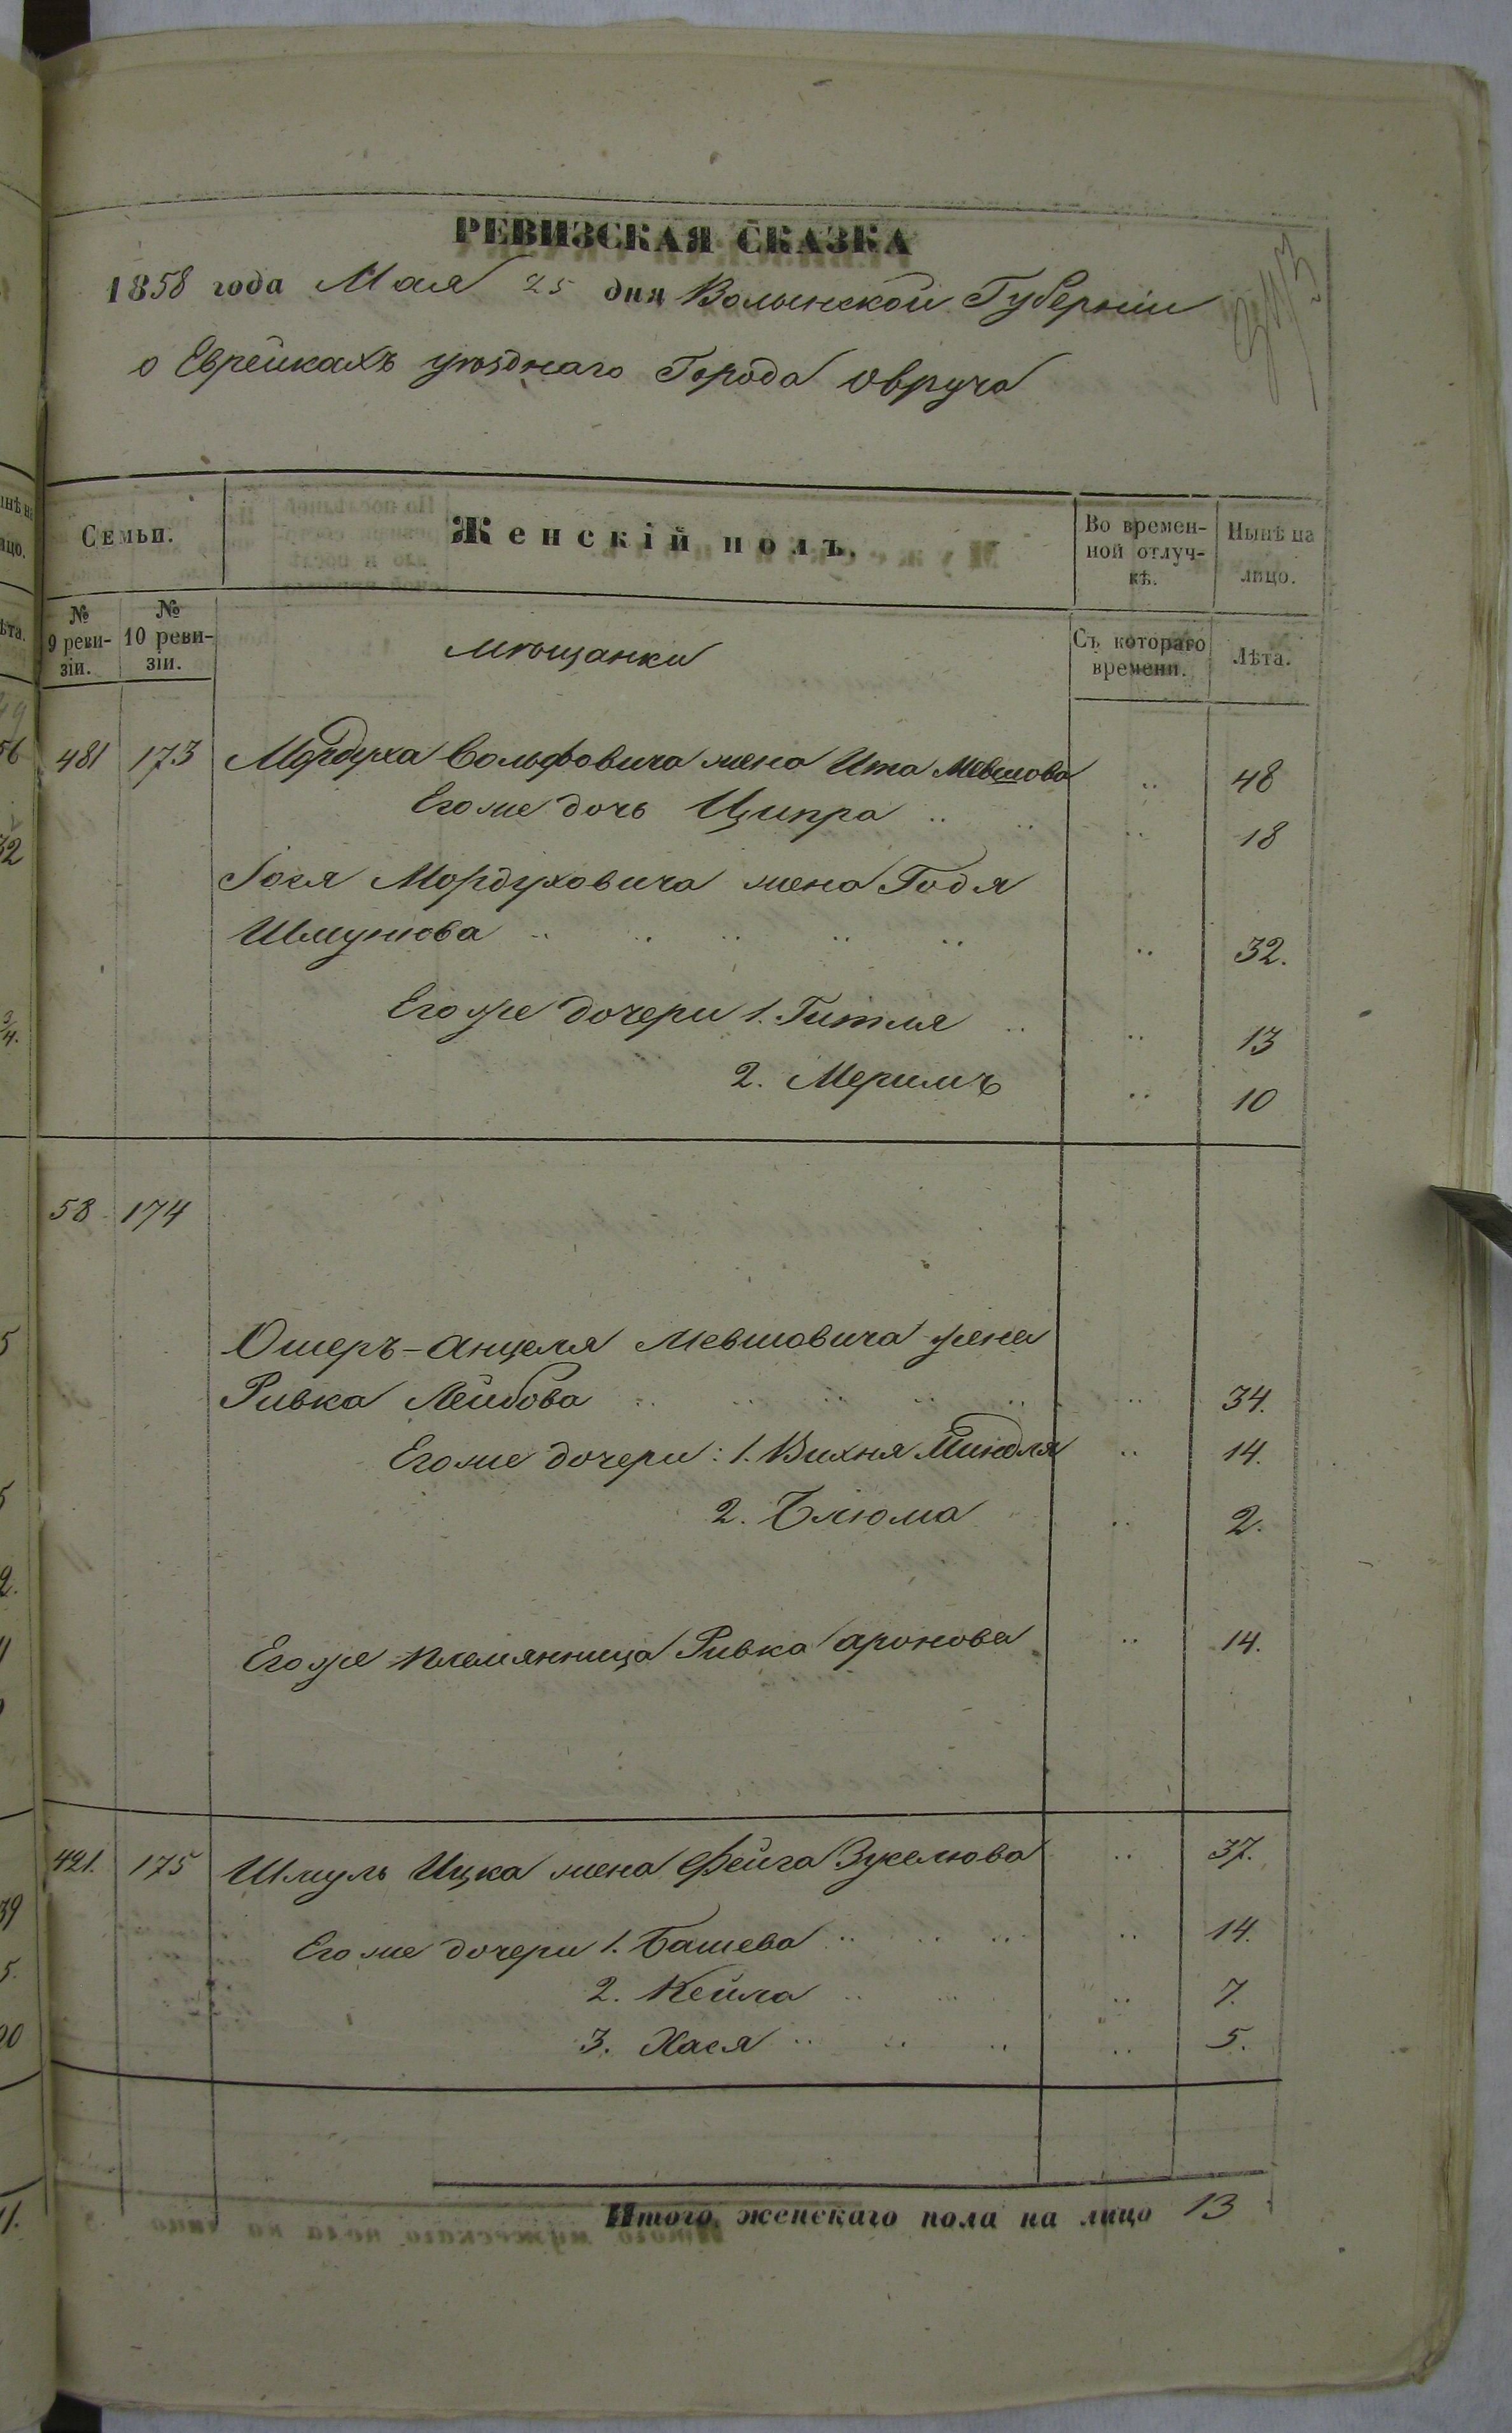 РЕВИЗСКАЯ СКАЗКА
1858 года Мая 25 дня Волынской Губерніи
о Еврейкахъ уѣзднаго Города Овруча
Семьи.
Женскій полъ.
Во времен-
ной отлуч-
кѣ.
Нынѣ на
лицо.
№
9 реви-
зіи.
№
10 реви-
зіи.
Мѣщанки
Съ котораго
времени.
Лѣта.
481 173 Мордуха Вольфовича жена Ита Мевшова 48
Егоже дочь Ципра 18
Іося Мордуховича жена Годя
Шмунова 32.
Егоже дочери 1. Гитля 13
2. Меримъ 10
58 174
Ошеръ-Анцеля Мевшовича жена
Ривка Лейбова 34.
Егоже дочери: 1. Вихня Миндля 14.
2. Блюма 2.
Егоже племянница Ривка Аронова 14.
421. 175 Шмуль Ицка жена Фейга Зуселюва 37.
Егоже дочери 1. Башева 14.
2. Кейла 7.
3. Хася 5.
Итого женскаго пола на лицо 13